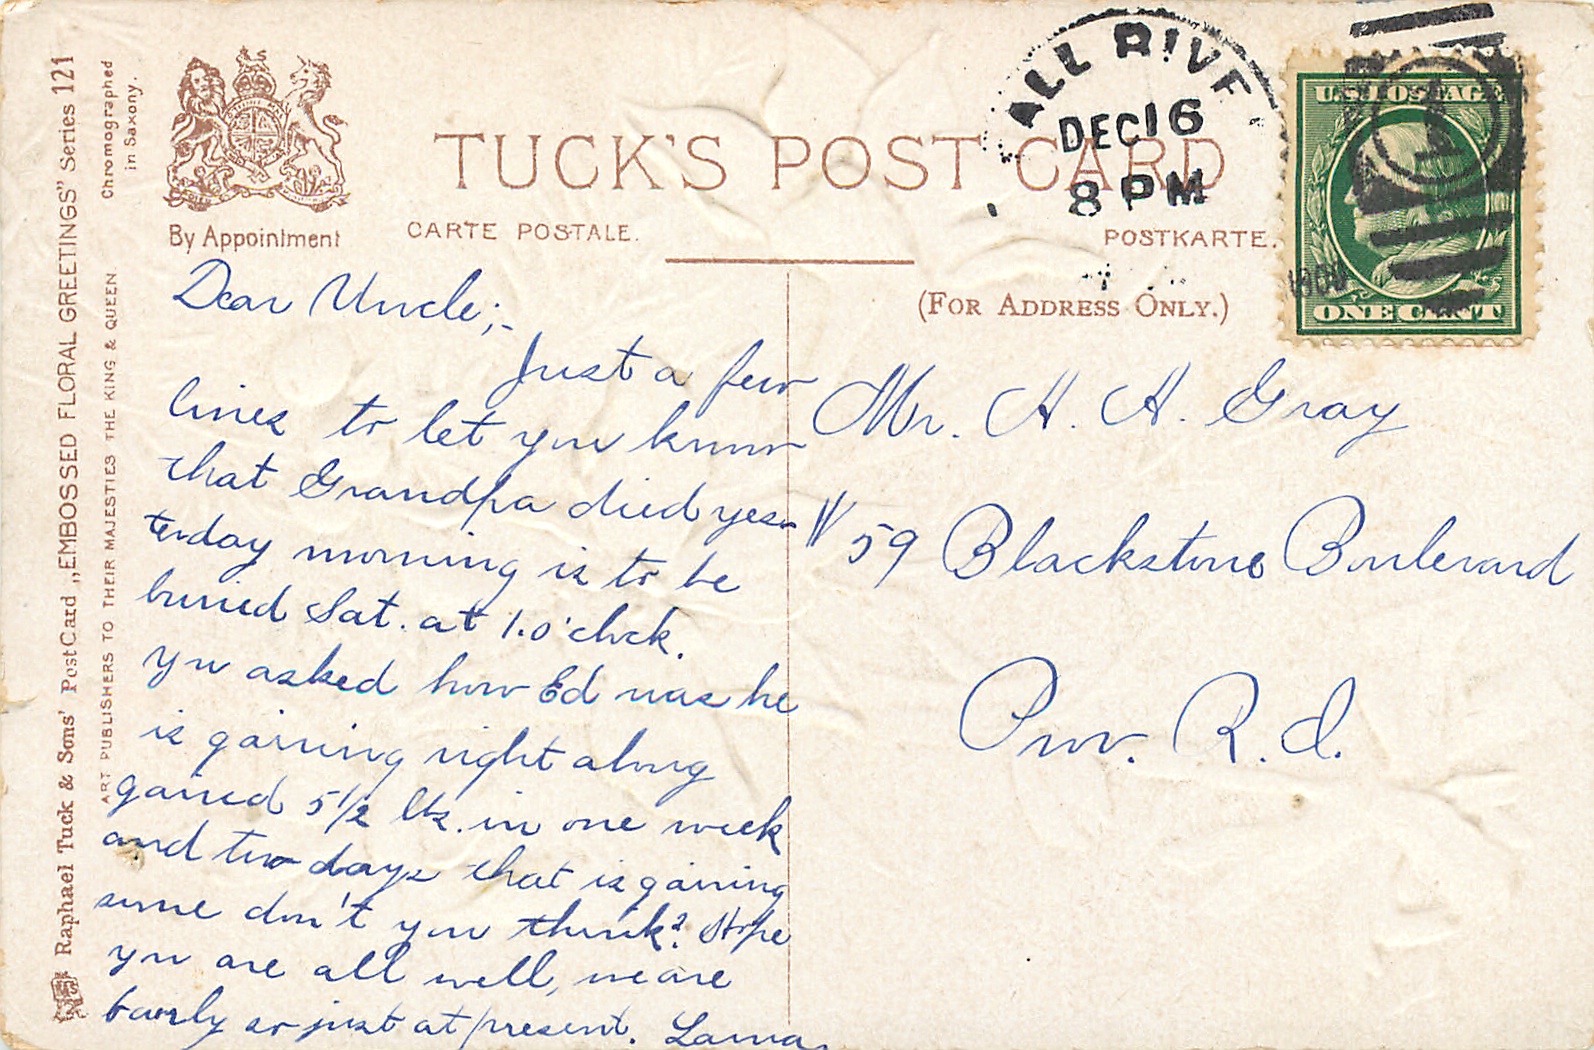 Raphael Tuck & Sons' Post Card „EMBOSSED FLORAL GREETINGS" Series 121
ART PUBLISHERS TO THEIR MAJESTIES THE KING & QUEEN
Chromographed
in Saxony.
By Appointment
TUCK'S POST CARD
CARTE POSTALE.
POSTKARTE.
(FOR ADDRESS ONLY.)
ALL RIVE
DEC 16
8 PM
U.S. POSTAGE
ONE CENT
1
Dear Uncle;-
Just a few
lines to let you know
that Grandpa died yes-
terday morning is to be
buried Sat. at 1.o'clock.
You asked how Ed was he
is gaining right along
gained 5 1/2 lbs. in one week
and two days that is gaining
some don't you think? Hope
you are all well, we are
fairly so just at present. Laura.
Mr. H. H. Gray
# 59 Blackstone Boulevard
Prov. R.I.